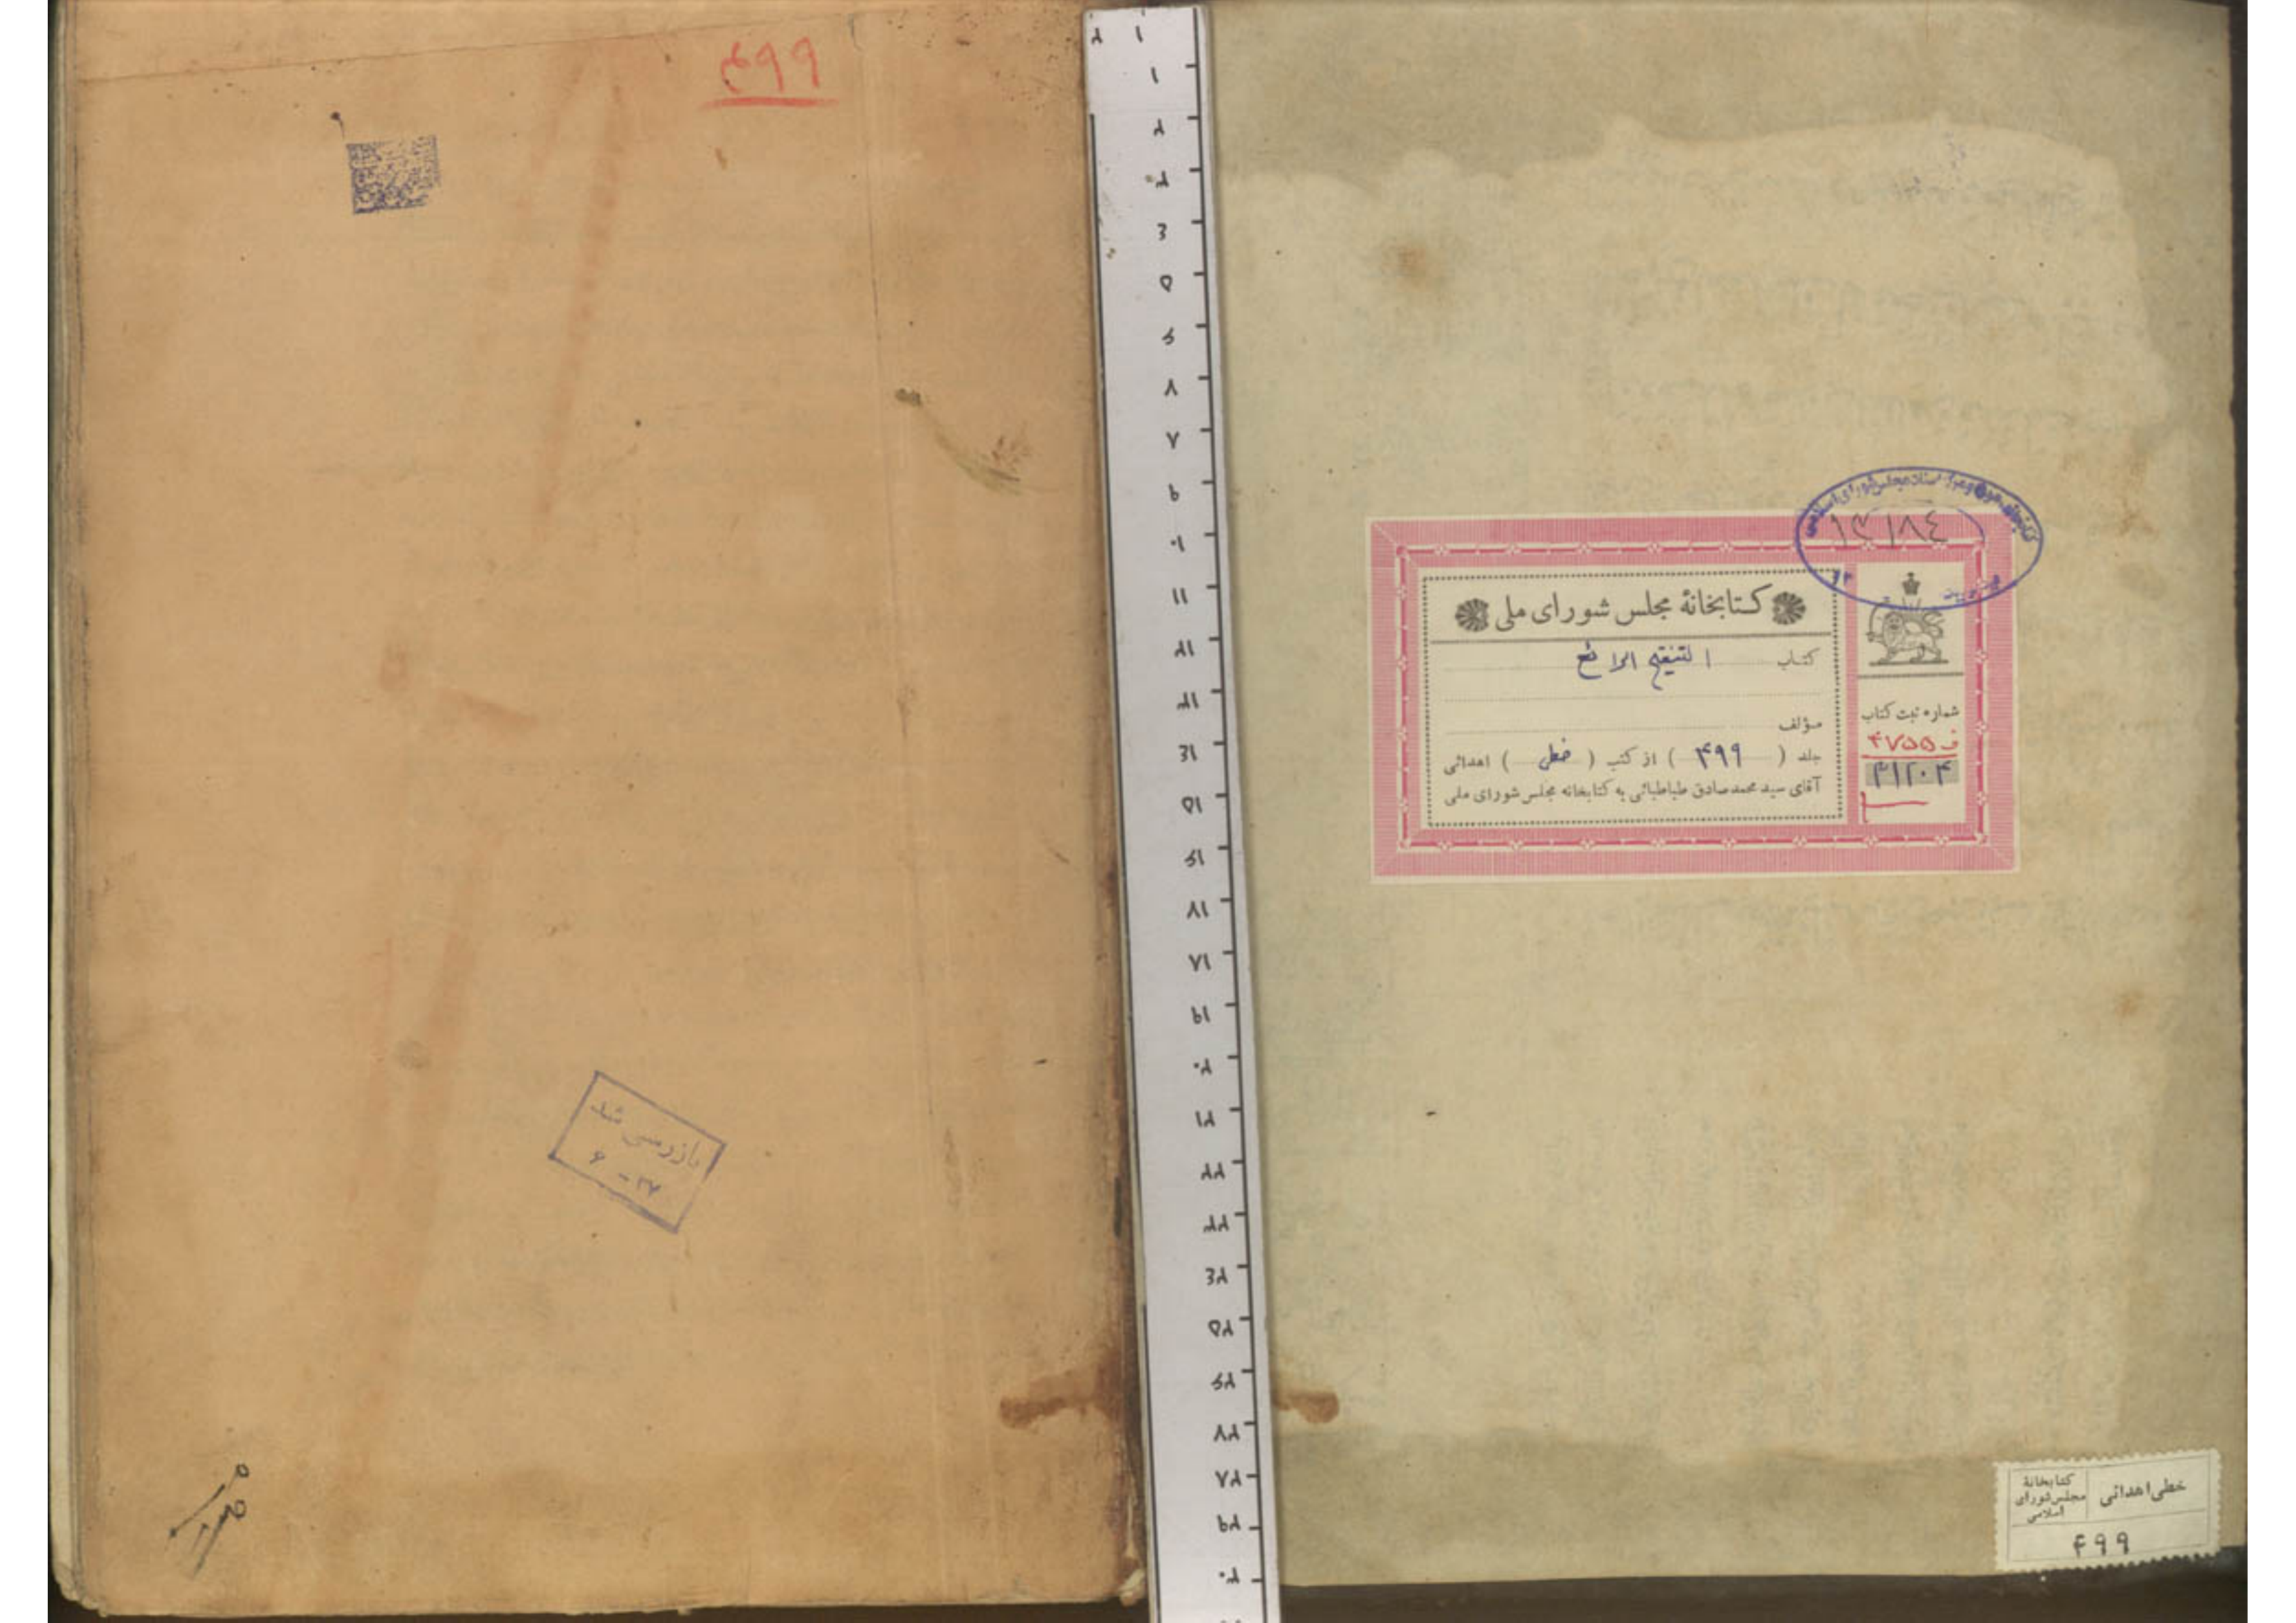 ۴۹۹
کتابخانه مجلس شورای ملی
کتاب التنقیح الرائع
مؤلف
جلد ( ۴۹۹ ) از کتب ( خطی ) اهدائی
آقای سید محمدصادق طباطبائی به کتابخانه مجلس شورای ملی
شماره ثبت کتاب
ف ۴۷۵۵
۴۱۲۰۴
۱۳۱۸۴
بازرسی شد
۶ - ۳۷
خطی اهدائی
کتابخانهٔ
مجلس شورای
اسلامی
۴۹۹